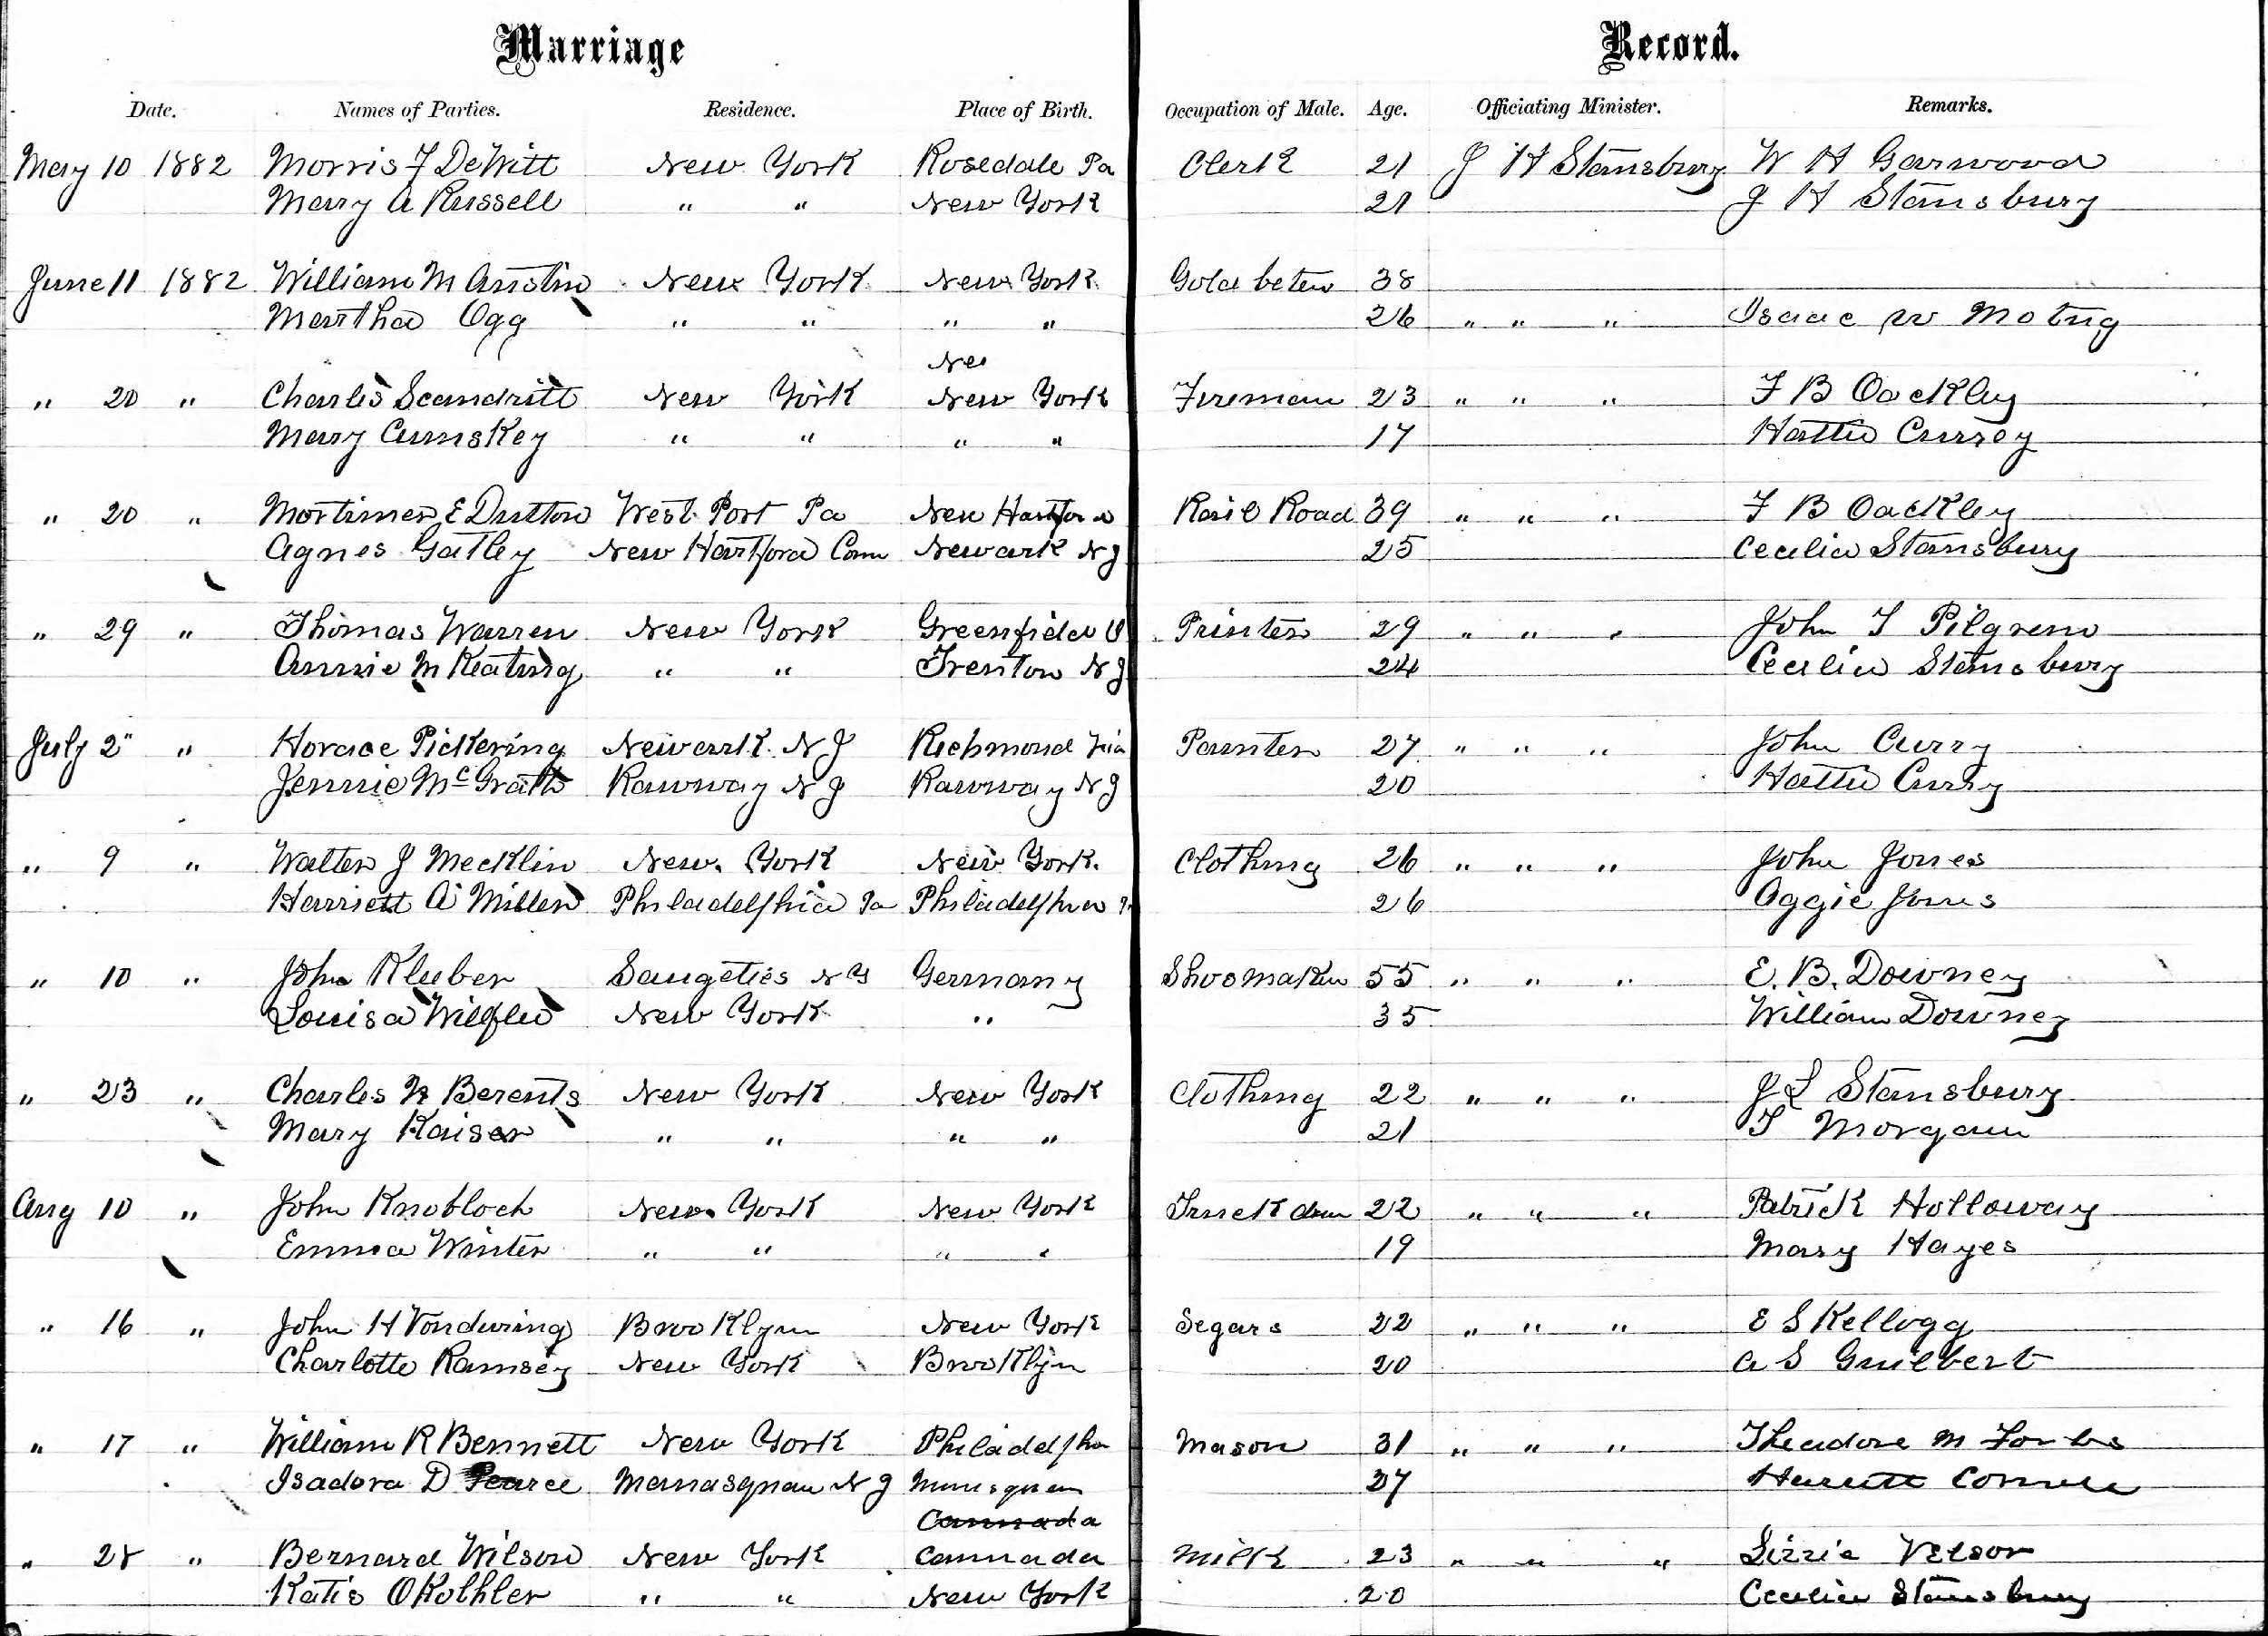 Marriage Record.
Date. Names of Parties. Residence. Place of Birth. Occupation of Male. Age. Officiating Minister. Remarks.
May 10 1882 Morris F DeWitt New York Rosedale Pa Clerk 21 J H Stansbury W H Garwood
Mary A Russell " " New York 21 J H Stansbury
June 11 1882 William M Austin New York New York Gold beter 38
Martha Ogg " " " " 26 " " " Isaac W
Ne
" 20 " Charles Scandritt New York New York Fireman 23 " " " F B Oackley
Mary Cumskey " " " " 17 Hattie Currey
" 20 " Mortimer E Dutton West Port Pa New Hartford Rail Road 39 " " " F B Oackley
Agnes Gatley New Hartford Conn Newark N J 25 Cecelia Stansbury
" 29 " Thomas Warren New York Greenfield Printer 29 " " " John T Pilgrem
Annie M Keating " " Trenton N J 24 Cecelia Stansbury
July 2" " Horace Pickering Newark N J Richmond Via Paunter 27 " " " John Curry
Jennie McGrath Rawway N J Rawway N J 20 Hattie Curry
" 9 " Walter J Mecklin New York New York. Clothing 26 " " " John Jones
Harriett A Miller Philadelphia Pa Philadelphia 26 Aggie Jones
" 10 " John Kluber Saugeties N Y Germany Shoomaker 55 " " " E. B. Downey
Louisa New York " 35 William Downey
" 23 " Charles N Berents New York New York Clothing 22 " " " J L Stansbury
Mary Kaiser " " " " 21 T Morgan
Aug 10 " John Knobloch New York New York 22 " " " Patrick Holloway
Emma Winter " " " " 19 Mary Hayes
" 16 " John H Vonduring Brooklyn New York Segars 22 " " " E S Kellogg
Charlotte Ramsey New York Brooklyn 20 A S Guilbert
" 17 " William R Bennett New York Philadelpha Mason 31 " " " Theadore M Forbs
Isadora D Pearce Manasquan N J Manasquan 27 Harriett
Cannada
" 28 " Bernard Wilson New York Cannada Milk 23 " " " Lizzie
Katie OKolhler " " New York 20 Cecelia Stansbury